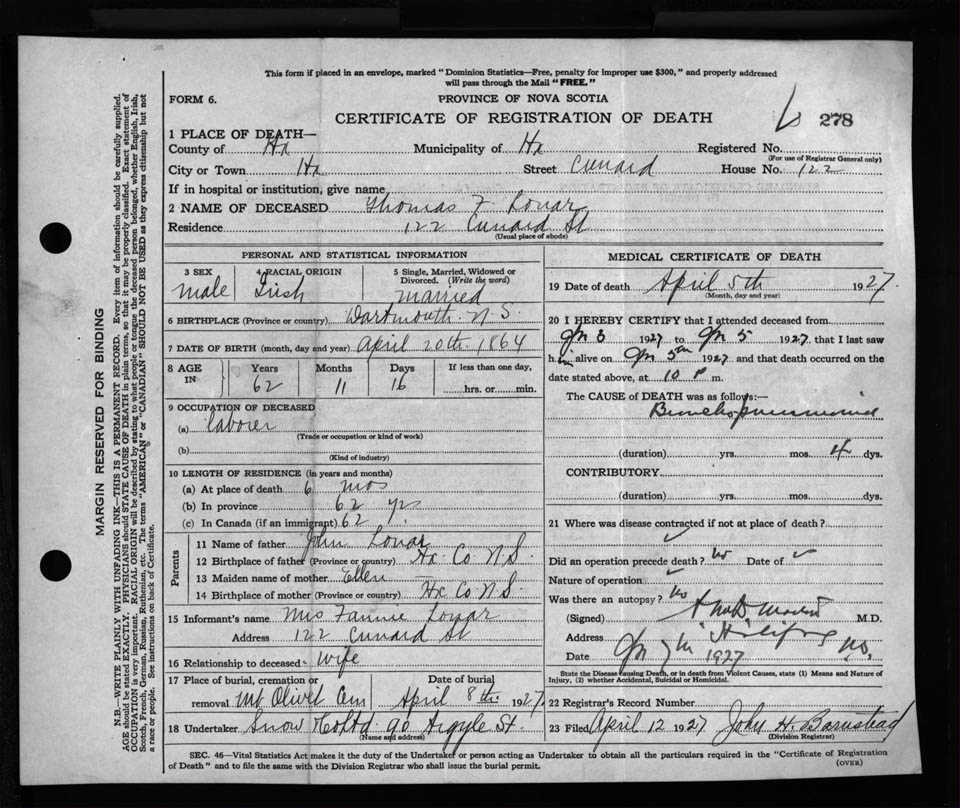 This form if placed in an envelope, marked "Dominion Statistics—Free, penalty for improper use $300," and properly addressed
will pass through the Mail "FREE."
FORM 6.
PROVINCE OF NOVA SCOTIA
CERTIFICATE OF REGISTRATION OF DEATH
278
1 PLACE OF DEATH—
County of Hx Municipality of Hx Registered No.
(For use of Registrar General only)
City or Town Hx Street Cunard House No. 122
If in hospital or institution, give name
2 NAME OF DECEASED Thomas F. Lonar
Residence 122 Cunard St
(Usual place of abode)
PERSONAL AND STATISTICAL INFORMATION
3 SEX
male
4 RACIAL ORIGIN
Irish
5 Single, Married, Widowed or
Divorced. (Write the word)
married
6 BIRTHPLACE (Province or country) Dartmouth N.S.
7 DATE OF BIRTH (month, day and year) April 20th 1864
8 AGE IN
Years Months Days If less than one day,
62 11 16 hrs. or min.
9 OCCUPATION OF DECEASED
(a) laborer
(Trade or occupation or kind of work)
(b)
(Kind of industry)
10 LENGTH OF RESIDENCE (in years and months)
(a) At place of death 6 mos
(b) In province 62 yrs
(c) In Canada (if an immigrant) 62
Parents
11 Name of father John Lonar
12 Birthplace of father (Province or country) Hx Co N.S.
13 Maiden name of mother Ellen
14 Birthplace of mother (Province or country) Hx Co N.S.
15 Informant's name Mrs Fannie Lonar
Address 122 Cunard St
16 Relationship to deceased wife
17 Place of burial, cremation or Date of burial
removal Mt Olivet Cem April 8th 1927
18 Undertaker Snow & Co Ltd 90 Argyle St
(Name and address)
MEDICAL CERTIFICATE OF DEATH
19 Date of death April 5th 1927
(Month, day and year)
20 I HEREBY CERTIFY that I attended deceased from
3 1927 to 5 1927 that I last saw
him alive on 5th 1927 and that death occurred on the
date stated above, at 10 P m.
The CAUSE of DEATH was as follows:—
Bronchopneumonia
(duration) yrs. mos. 4 dys.
CONTRIBUTORY
(duration) yrs. mos. dys.
21 Where was disease contracted if not at place of death?
Did an operation precede death? No Date of
Nature of operation
Was there an autopsy? No
(Signed) M.D.
Address Halifax N.S.
Date 7th 1927
State the Disease causing Death, or in death from Violent Causes, state (1) Means and Nature of
Injury, (2) whether Accidental, Suicidal or Homicidal.
22 Registrar's Record Number
23 Filed April 12 1927 John H. Barnstead
(Division Registrar)
SEC. 46—Vital Statistics Act makes it the duty of the Undertaker or person acting as Undertaker to obtain all the particulars required in the "Certificate of Registration
of Death" and to file the same with the Division Registrar who shall issue the burial permit.
(OVER)
MARGIN RESERVED FOR BINDING
N.B.—WRITE PLAINLY WITH UNFADING INK—THIS IS A PERMANENT RECORD. Every item of information should be carefully supplied.
AGE should be stated EXACTLY. PHYSICIANS should STATE CAUSE OF DEATH in plain terms, so that it may be properly classified. Exact statement of
OCCUPATION is very important. RACIAL ORIGIN will be described by stating to what people or tongue the deceased person belonged, whether English, Irish,
Scotch, French, German, Russian, Ruthenian, etc. The terms "AMERICAN" or "CANADIAN" SHOULD NOT BE USED as they express citizenship but not
a race or people. See instructions on back of Certificate.